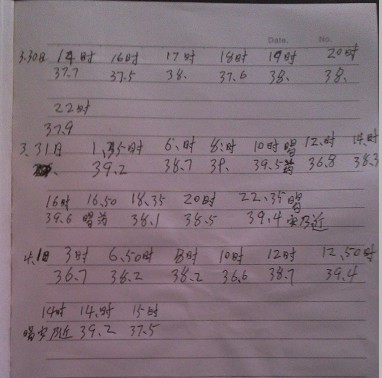 Date. No.
3.30日 14时 16时 17时 18时 19时 20时
37.7 37.5 38. 37.6 38. 38.
22时
37.9
3.31日 1.35时 6.时 8.时 10时喝药 12.时 14.时
39.2 38.7 39. 39.5 36.8 38.3
16时 16.50 18.35 20时 22.35喝
39.6 喝药 38.1 38.5 39.4 安乃近
4.1日 3时 6.50时 8时 10时 12时 12.50时
36.7 38.2 38.2 36.6 38.7 39.4
14时 14.时 15时
喝安乃近 39.2 37.5